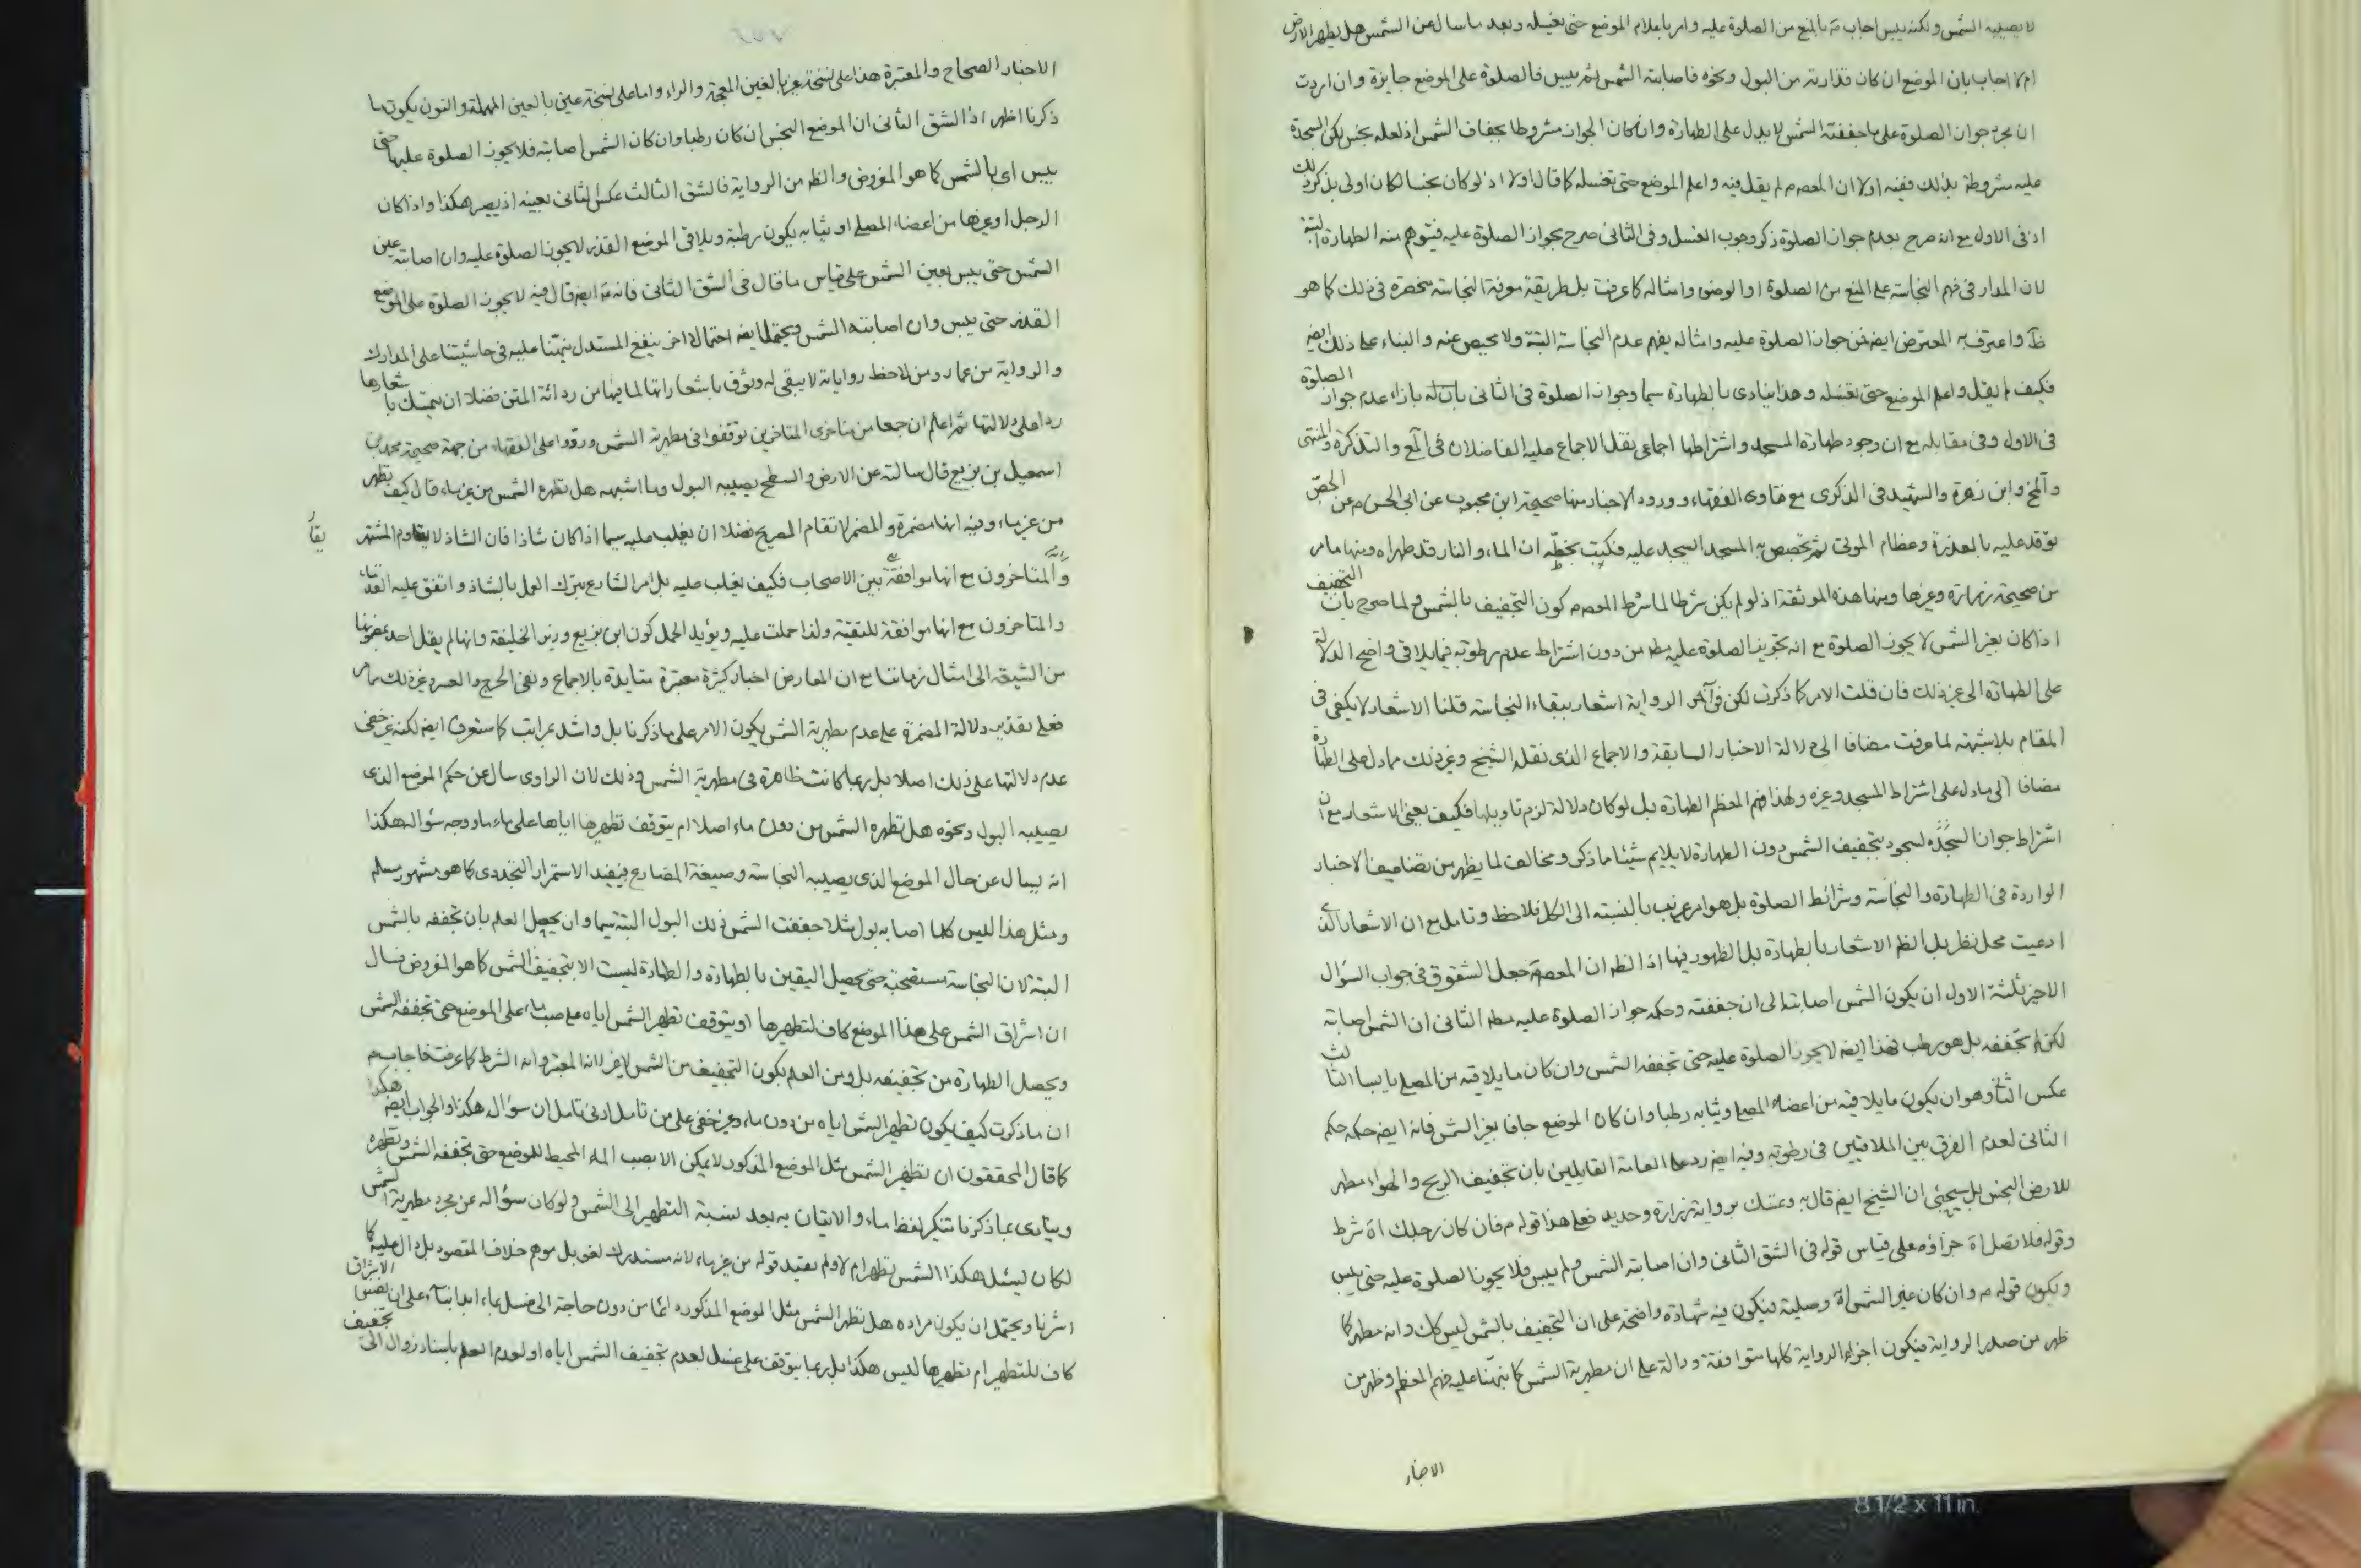 لا يصيبه الشمس ولكنه يبس اجاب ع بالمنع من الصلوة عليه وامر باعلام الموضع حتى يغسله وبعد ما سال عن الشمس هل يطهر الارض
ام لا اجاب بان الموضع ان كان قذارته من البول ونحوه فاصابته الشمس ثم يبس فالصلوة على الموضع جايزة وان اردت
ان مجرد جواز الصلوة على ما جففته الشمس لا يدل على الطهارة وان كان الجواز مشروطا بجفاف الشمس اذ لعله نجس لكن السجدة
عليه مشروطة بذلك ففيه اولا ان المعصوم لم يقل فيه واعلم الموضع حتى تغسله كما قال اولا اذ لو كان نجسا لكان اولى بذكر ذلك
اذ في الاول مع انه صرح بعدم جواز الصلوة ذكر وجوب الغسل وفي الثانى صرح بجواز الصلوة عليه فيتوهم منه الطهارة البتة
لان المدار في فهم النجاسة على المنع من الصلوة او الوضوء وامثاله كما عرفت بل طريقة معرفة النجاسة منحصرة في ذلك كما هو
ظ واعترف به المعترض ايضا فمن جواز الصلوة عليه وامثاله يفهم عدم النجاسة البتة ولا محيص عنه والبناء على ذلك ايضا
فكيف لم يقل واعلم الموضع حتى تغسله وهذا ينادى بالطهارة سيما وجواز الصلوة في الثانى بازاء عدم جواز الصلوة
في الاول وفي مقابله مع ان وجود طهارة المسجد واشتراطها اجماعى نقل الاجماع عليه الفاضلان في المع والتذكرة والمنتهى
والخ وابن زهرة والشهيد في الذكرى مع فتاوى الفقهاء وورود الاخبار منها صحيحة ابن محبوب عن ابى الحسن ع عن الجص
توقد عليه بالعذرة وعظام الموتى ثم يجصص به المسجد ايسجد عليه فكتب بخطه ان الماء والنار قد طهراه ومنها ما مر
من صحيحة زرارة وغيرها ومنها هذه الموثقة اذ لو لم يكن شرطا لما شرط المعصوم كون التجفيف بالشمس ولما صرح بان التجفيف
اذا كان بغير الشمس لا يجوز الصلوة مع انه تجويز الصلوة عليه مط من دون اشتراط عدم رطوبة فيما يلاقى واضح الدلالة
على الطهارة الى غير ذلك فان قلت الامر كما ذكرت لكن في آخر الرواية اشعار ببقاء النجاسة قلنا الاشعار لا يكفى في
المقام بلا شبهة لما عرفت مضافا الى دلالة الاخبار السابقة والاجماع الذى نقله الشيخ وغير ذلك مما دل على الطهارة
مضافا الى ما دل على اشتراط المسجد وغيره ولهذا فهم المعظم الطهارة بل لو كان دلالة لزم تاويلها فكيف يعنى الاشعار مع ان
اشتراط جواز السجدة بتجفيف الشمس دون الطهارة لا يلايم شيئا مما ذكر ومخالف لما يظهر من تضاعيف الاخبار
الواردة في الطهارة والنجاسة وشرائط الصلوة بل هو امر غريب بالنسبة الى الكل فلاحظ وتامل مع ان الاشعار الذى
ادعيت محل نظر بل الظ الاشعار بالطهارة بل الظهور فيها اذ الظ ان المعصوم جعل الشقوق في جواب السؤال
الاخير ثلثة الاول ان يكون الشمس اصابته الى ان جففته وحكمه جواز الصلوة عليه مط الثانى ان الشمس اصابته
لكن لم تجففه بل هو رطب فهذا ايضا لا يجوز الصلوة عليه حتى تجففه الشمس وان كان ما يلاقيه من المصلى يابسا الثالث
عكس الثانى وهو ان يكون ما يلاقيه من اعضاء المصلى وثيابه رطبا وان كان الموضع جافا بغير الشمس فانه ايضا حكمه حكم
الثانى لعدم الفرق بين الملاقيين في رطوبته وفيه ايضا رد على العامة القايلين بان تجفيف الريح والهواء مطهر
للارض النجس بل سيجئ ان الشيخ ايضا قال به وتمسك برواية زرارة وحديد فعلى هذا قوله م فان كان رجلك اه شرط
وقوله فلا تصل اه جزاؤه على قياس قوله في الشق الثانى وان اصابته الشمس ولم ييبس فلا يجوز الصلوة عليه حتى ييبس
ويكون قوله م وان كان غير الشمس اه وصلية فيكون فيه شهادة واضحة على ان التجفيف بالشمس ليس كك وانه مطهر كما
ظهر من صدر الرواية فيكون اجزاء الرواية كلها متوافقة ودالة على ان مطهرية الشمس كما نبهنا عليه فهم المعظم وظهر من
الاخبار
الاخبار الصحاح والمعتبرة هذا على نسخة غير بالغين المعجمة والراء واما على نسخة عين بالعين المهملة والنون يكون ما
ذكرنا اظهر اذ الشق الثانى ان الموضع النجس ان كان رطبا وان كان الشمس اصابته فلا يجوز الصلوة عليها حتى
ييبس اى بالشمس كما هو المفروض والظ من الرواية فالشق الثالث عكس الثانى بعينه اذ يصير هكذا واذا كان
الرجل او غيرها من اعضاء المصلى او ثيابه يكون رطبة ويلاقى الموضع القذر لا يجوز الصلوة عليه وان اصابته عين
الشمس حتى ييبس بعين الشمس على قياس ما قال في الشق الثانى فانه ع ايضا قال فيه لا يجوز الصلوة على الموضع
القذر حتى ييبس وان اصابته الشمس ويحتمل ايضا احتمالا اخر ينفع المستدل نبهنا عليه في حاشيتنا على المدارك
والرواية من عمار ومن لاحظ رواياته لا يبقى له وثوق باشعاراتها لما فيها من ردائة المتن فضلا ان يتمسك باشعارها
ردا على دلالتها ثم اعلم ان جمعا من متاخرى المتاخرين توقفوا في مطهرية الشمس وردوا على الفقهاء من جهة صحيحة محمد بن
اسمعيل بن بزيع قال سالته عن الارض والسطح يصيبه البول وما اشبهه هل تطهره الشمس من غير ماء قال كيف تطهر
من غير ماء وفيه انها مضمرة والمضمر لا تقام الصريح فضلا ان يغلب عليه سيما اذا كان شاذا فان الشاذ لا يقاوم المشتهر
يقا
والمتاخرون مع انها موافقة بين الاصحاب فكيف يغلب عليه بل امر الشارع بترك العمل بالشاذ واتفق عليه القدماء
والمتاخرون مع انها موافقة للتقية ولذا حملت عليه ويؤيد الحمل كون ابن بزيع وزير الخليفة وانها لم يقل احد بمضمونها
من الشيعة الى امثال زماننا مع ان المعارض اخبار كثيرة معتبرة متايدة بالاجماع ونفى الحرج والعسر وغير ذلك مما مر
فعلى تقدير دلالة المضمرة على عدم مطهرية الشمس يكون الامر على ما ذكرنا بل واشد بمراتب كما ستعرف ايضا لكنه غير خفى
عدم دلالتها على ذلك اصلا بل ربما كانت ظاهرة في مطهرية الشمس وذلك لان الراوى سال عن حكم الموضع الذى
يصيبه البول ونحوه هل تطهره الشمس من دون ماء اصلا ام يتوقف تطهيرها اياها على ماء ما ووجه سؤاله هكذا
انه يسال عن حال الموضع الذى يصيبه النجاسة وصيغة المضارع يفيد الاستمرار التجددى كما هو مشهور مسلم
ومثل هذا ليس كلما اصابه بول مثلا جففت الشمس ذلك البول البتة سيما وان يحصل العلم بان تجففه بالشمس
البتة لان النجاسة مستصحبة حتى يحصل اليقين بالطهارة والطهارة ليست الا بتجفيف الشمس كما هو المفروض فسال
ان اشراق الشمس على هذا الموضع كاف لتطهيرها او يتوقف تطهير الشمس اياه على صب ماء على الموضع حتى تجففه الشمس
ويحصل الطهارة من تجفيفه بل ومن العلم بكون التجفيف من الشمس لا غير لانه المعتبر وانه الشرط كما عرفت فاجاب م
ان ما ذكرت كيف يكون تطهير الشمس اياه من دون ماء وغير خفى على من تامل ادنى تامل ان سؤاله هكذا والجواب ايضا هكذا
كما قال المحققون ان تطهير الشمس مثل الموضع المذكور لا يمكن الا بصب الماء المحيط للموضع حتى تجففه الشمس وتطهره
وينادى بما ذكرنا تنكير لفظ ماء والاتيان به بعد نسبة التطهير الى الشمس ولو كان سؤاله عن مجرد مطهرية الشمس
لكان ليسئل هكذا الشمس تطهر ام لا ولم يقيد قوله من غير ماء لانه مستدرك لغو بل موهم خلاف المقصود بل دال عليه كما
اشرنا ويحتمل ان يكون مراده هل تطهر الشمس مثل الموضع المذكور دائما من دون حاجة الى غسل بماء ابدا بناء على ان نفس الاشراق
كاف للتطهير ام تطهيرها ليس هكذا بل ربما يتوقف على غسل لعدم تجفيف الشمس اياه او لعدم العلم باستناد زوال التجفيف